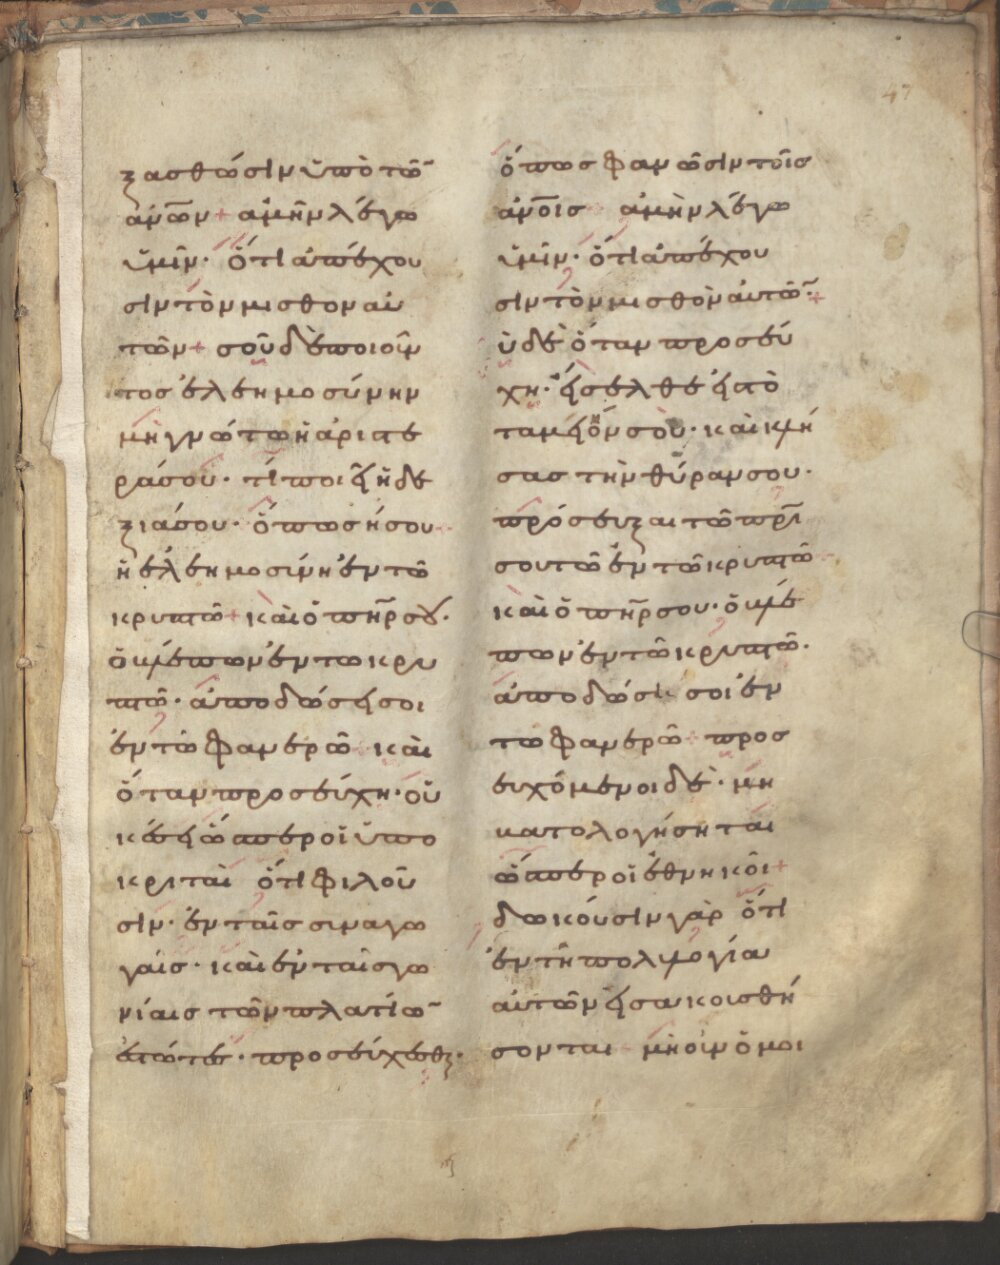 47
ξασθώσιν ὑπὸ τῶ̅
ἀν̅ων + ἀμὴν λέγω
ὑμῖν· ὅτι ἀπέχου
σιν τὸν μισθον αὐ
τῶν + σοῦ δὲ ποιοῦν
τος ἐλεημοσύνην
μὴ γνώτω ἡ ἀριστε
ράσου· τί ποιεῖ ἡ δε
ξιάσου· ὅπως ἠσου
ἡ ἐλεημοσίνη ἐν τῶ
κρυπτῶ + καὶ ὁ πη̅ρ σου·
ὁ βλέπων ἐν τω κρυ
πτῶ· ἀποδώσει σοι
ἐν τῶ φανερῶ + καὶ
ὅταν προσεύχη· οὐ
κ ἔσει ὥσπερ οἱ ὑπο
κριταὶ ὅτι φιλοῦ
σιν· ἐν ταῖς σιναγω
γαίς· καὶ ἐν ταῖς γω
νίαις τῶν πλατίω̅
ἐστώτες· προσεύχεσθ·
ὅπως φανῶσιν τοῖς
ἀν̅οις ἀμὴν λέγω
ὑμῖν· ὅτι ἀπέχου
σιν τὸν μισθὸν αὐτῶ̅ +
ὑ δὲ ὅταν προσεύ
χη· εἴσελθε εἰς τὸ
ταμειόν σοὺ· καὶ κλή
σας τὴν θύραν σου·
πρόσευξαι τῶ πρ̅ι
σου τῶ ἐν τῶ κρυπτῶ
καὶ ὁ πη̅ρ σου· ὁ βλέ
πων ἐν τῶ κρυπτῶ·
ἀποδώσει σοι ἐν
τω φανερῶ + προσ
ευχόμενοι δὲ· μη
βατολογήσηται
ὥσπερ οἱ ἐθνηκοι +
δωκούσιν γὰρ ὅτι
ἐν τῆ πολιλογία
αὐτῶν εἰσακουσθή
σονται μὴ οὖν ὁμοι